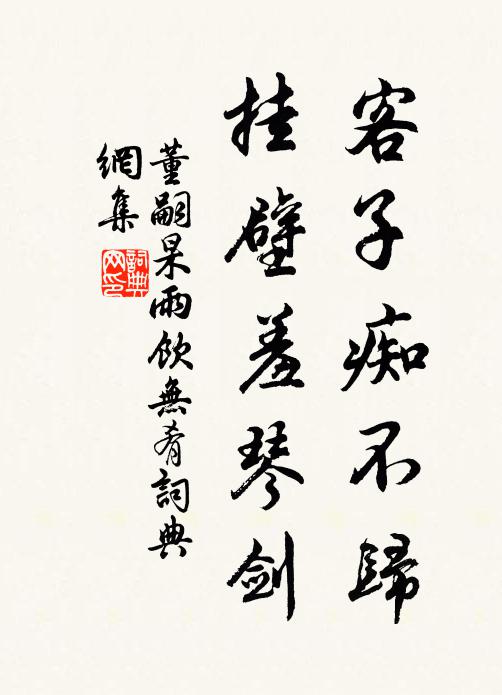 客子痴不歸
挂壁羞琴劍
董嗣杲雨飲無肴詞典
網集
詞典
网印